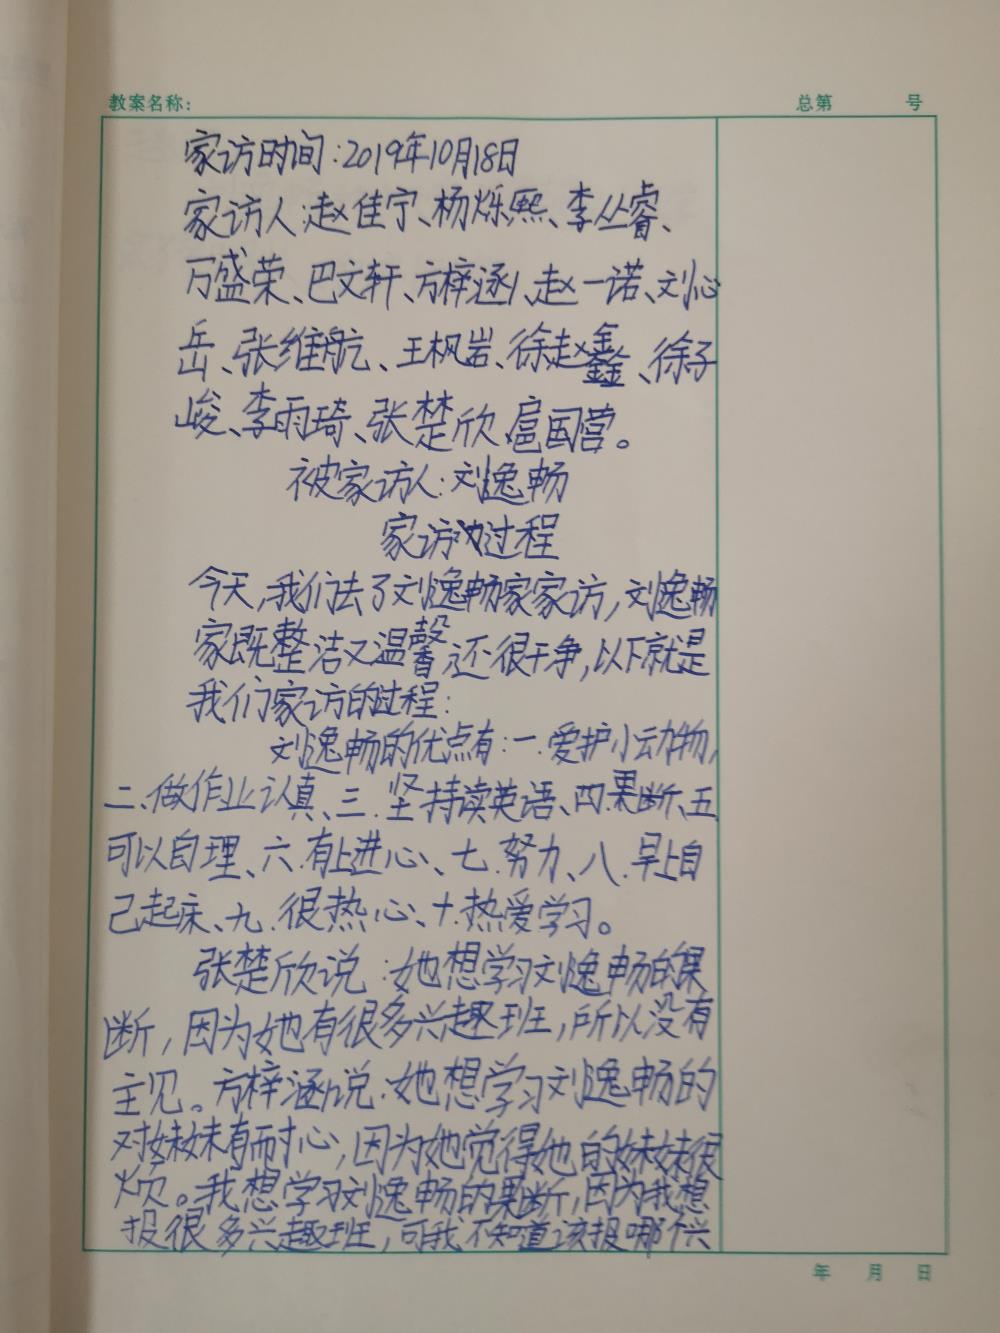 教案名称: 总第 号
家访时间:2019年10月18日
家访人:赵佳宁、杨烁熙、李丛睿、
万盛荣、巴文轩、方梓涵、赵一诺、刘心
岳、张维航、王枫岩、徐赵鑫、徐子
峻、李雨琦、张楚欣、扈国营。
被家访人:刘逸畅
家访的过程
今天,我们去了刘逸畅家家访,刘逸畅
家既整洁又温馨还很干净,以下就是
我们家访的过程:
刘逸畅的优点有:一.爱护小动物,
二、做作业认真、三.坚持读英语、四.果断、五
可以自理、六.有上进心、七.努力、八.早上自
己起床、九.很热心、十.热爱学习。
张楚欣说:她想学习刘逸畅的果
断,因为她有很多兴趣班,所以没有
主见。方梓涵说:她想学习刘逸畅的
对妹妹有耐心,因为她觉得她的妹妹很
烦。我想学习刘逸畅的果断,因为我想
报很多兴趣班,可我不知道该报哪个兴
年 月 日